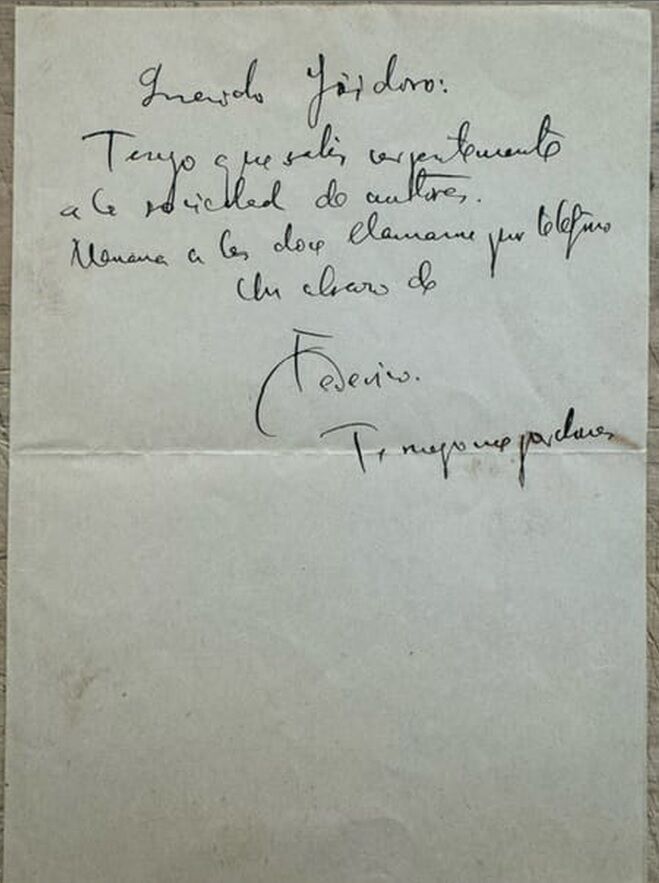 Querido Isidoro:
Tengo que salir urgentemente
a la sociedad de autores.
Manana a las doce llamame por telefono
Un abrazo de
Federico.
Te ruego me perdones